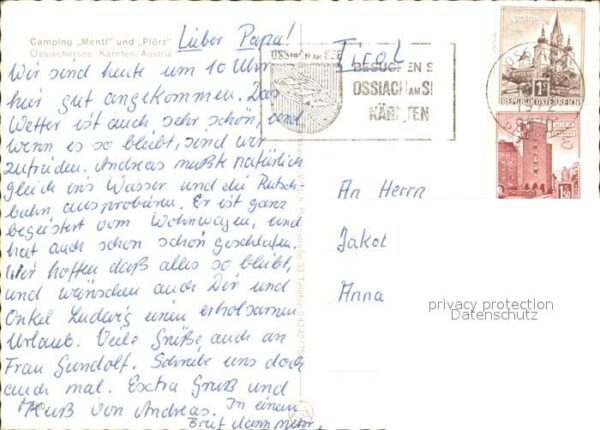 Camping „Mentl" und „Plörz"
Ossiachersee Kärnten, Austria
Lieber Papa!
Wir sind heute um 10 Uhr
hier gut angekommen. Das
Wetter ist auch sehr schön, und
wenn es so bleibt, sind wir
zufrieden. Andreas mußte natürlich
gleich ins Wasser und die Rutsch-
bahn ausprobieren. Er ist ganz
begeistert vom Wohnwagen, und
hat auch schon schön geschlafen.
Wir hoffen daß alles so bleibt,
und wünschen auch Dir und
Onkel Ludwig einen erholsamen
Urlaub. Viele Grüße auch an
Frau Gundolf. Schreibe uns doch
auch mal. Extra Gruß und
Kuß von Andreas. In einem
Brief dann mehr.
Tirol
OSSIACH AM SEE
BESUCHEN S
OSSIACH AM S
KÄRNTEN
REPUBLIK ÖSTERREICH
1972
1.50
An Herrn
Jakob
Anna
privacy protection
Datenschutz